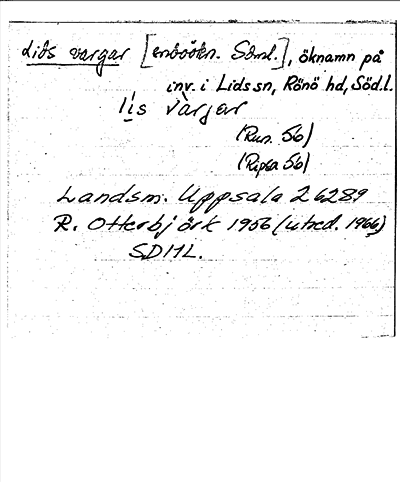 Lids vargar [inböökn. Söml.], öknamn på
inv. i Lids sn, Rönö hd, Söd.l.
lis vàrgar
(Run. 56)
(Ripsa 56)
Landsm. Uppsala 26289
R. Otterbjörk 1956 (utred. 1966)
SDHL.